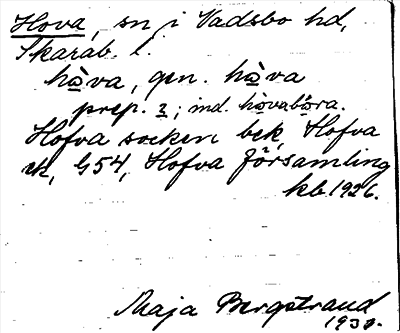 Hova, sn i Vadsbo hd,
Skarab. l.
hòva, gen. hòva
prep. i; ind. hòvabòra.
Hofva socken bek, Hofva
sk, G54, Hofva församling
kb. 1926.
Maja Bergstrand
1930.